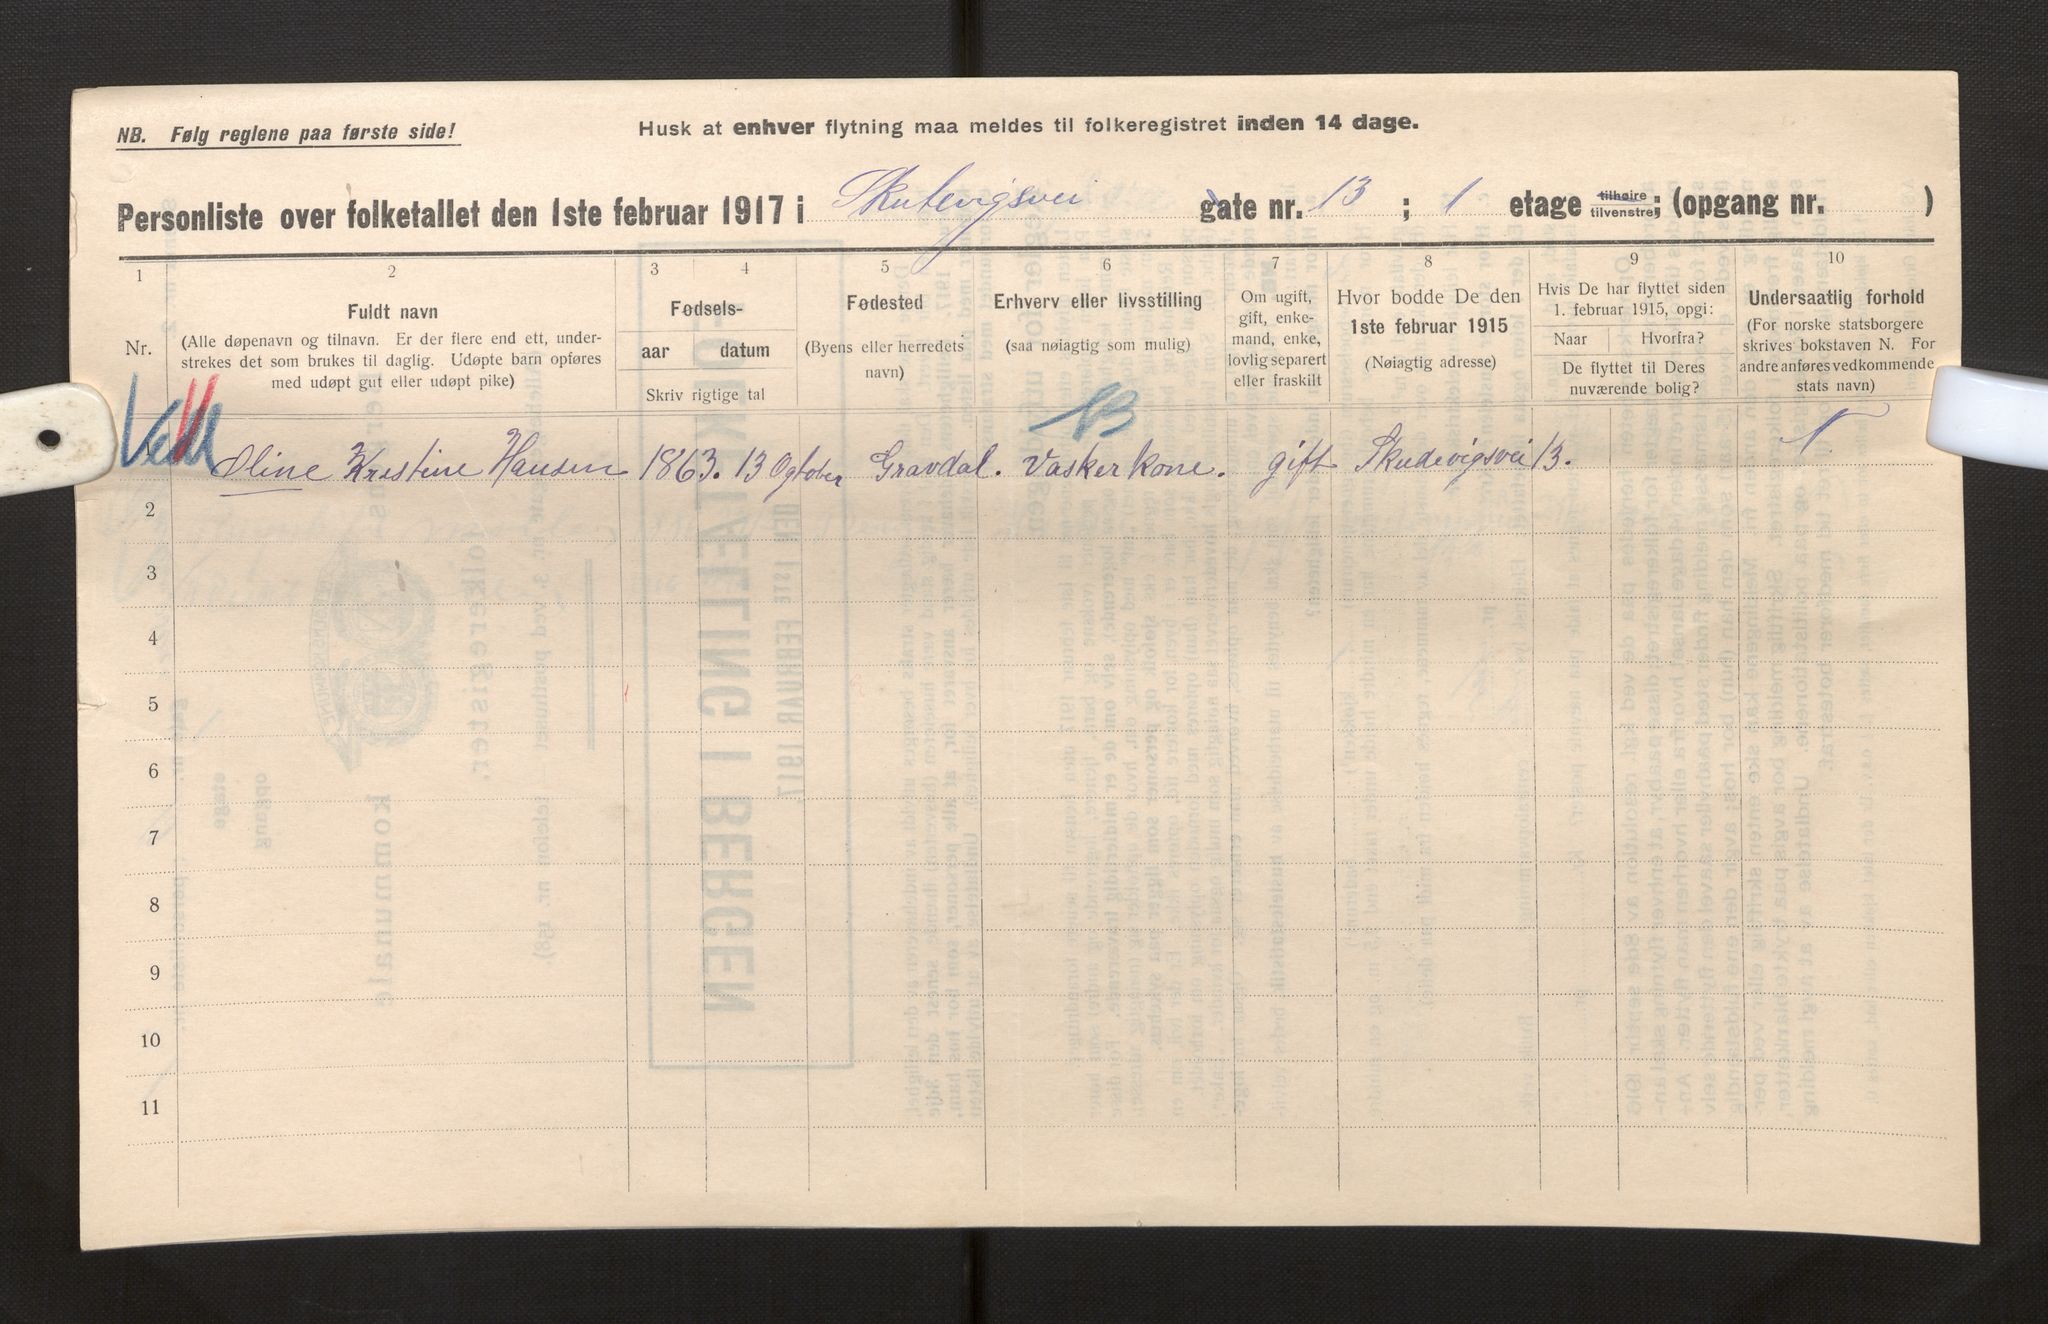 NB. Følg reglene paa første side!
Husk at enhver flytning maa meldes til folkeregistret inden 14 dage.
Personliste over folketallet den 1ste februar 1917 i Skutevigsvei gate nr. 13 ; 1 etage tilhøire tilvenstre ; (opgang nr. )
1 2 3 4 5 6 7 8 9 10
Nr.
Fuldt navn
(Alle døpenavn og tilnavn. Er der flere end ett, under-
strekes det som brukes til daglig. Udøpte barn opføres
med udøpt gut eller udøpt pike)
Fødsels-
aar datum
Skriv rigtige tal
Fødested
(Byens eller herredets
navn)
Erhverv eller livsstilling
(saa nøiagtig som mulig)
Om ugift,
gift, enke-
mand, enke,
lovlig separert
eller fraskilt
Hvor bodde De den
1ste februar 1915
(Nøiagtig adresse)
Hvis De har flyttet siden
1. februar 1915, opgi:
Naar Hvorfra?
De flyttet til Deres
nuværende bolig?
Undersaatlig forhold
(For norske statsborgere
skrives bokstaven N. For
andre anføres vedkommende
stats navn)
Oline Kristine Hansen 1863. 13 Ogtober Gravdal. Vaskerkone. gift Skudevigsvei 13.
2
3
4
5
6
7
8
9
10
11